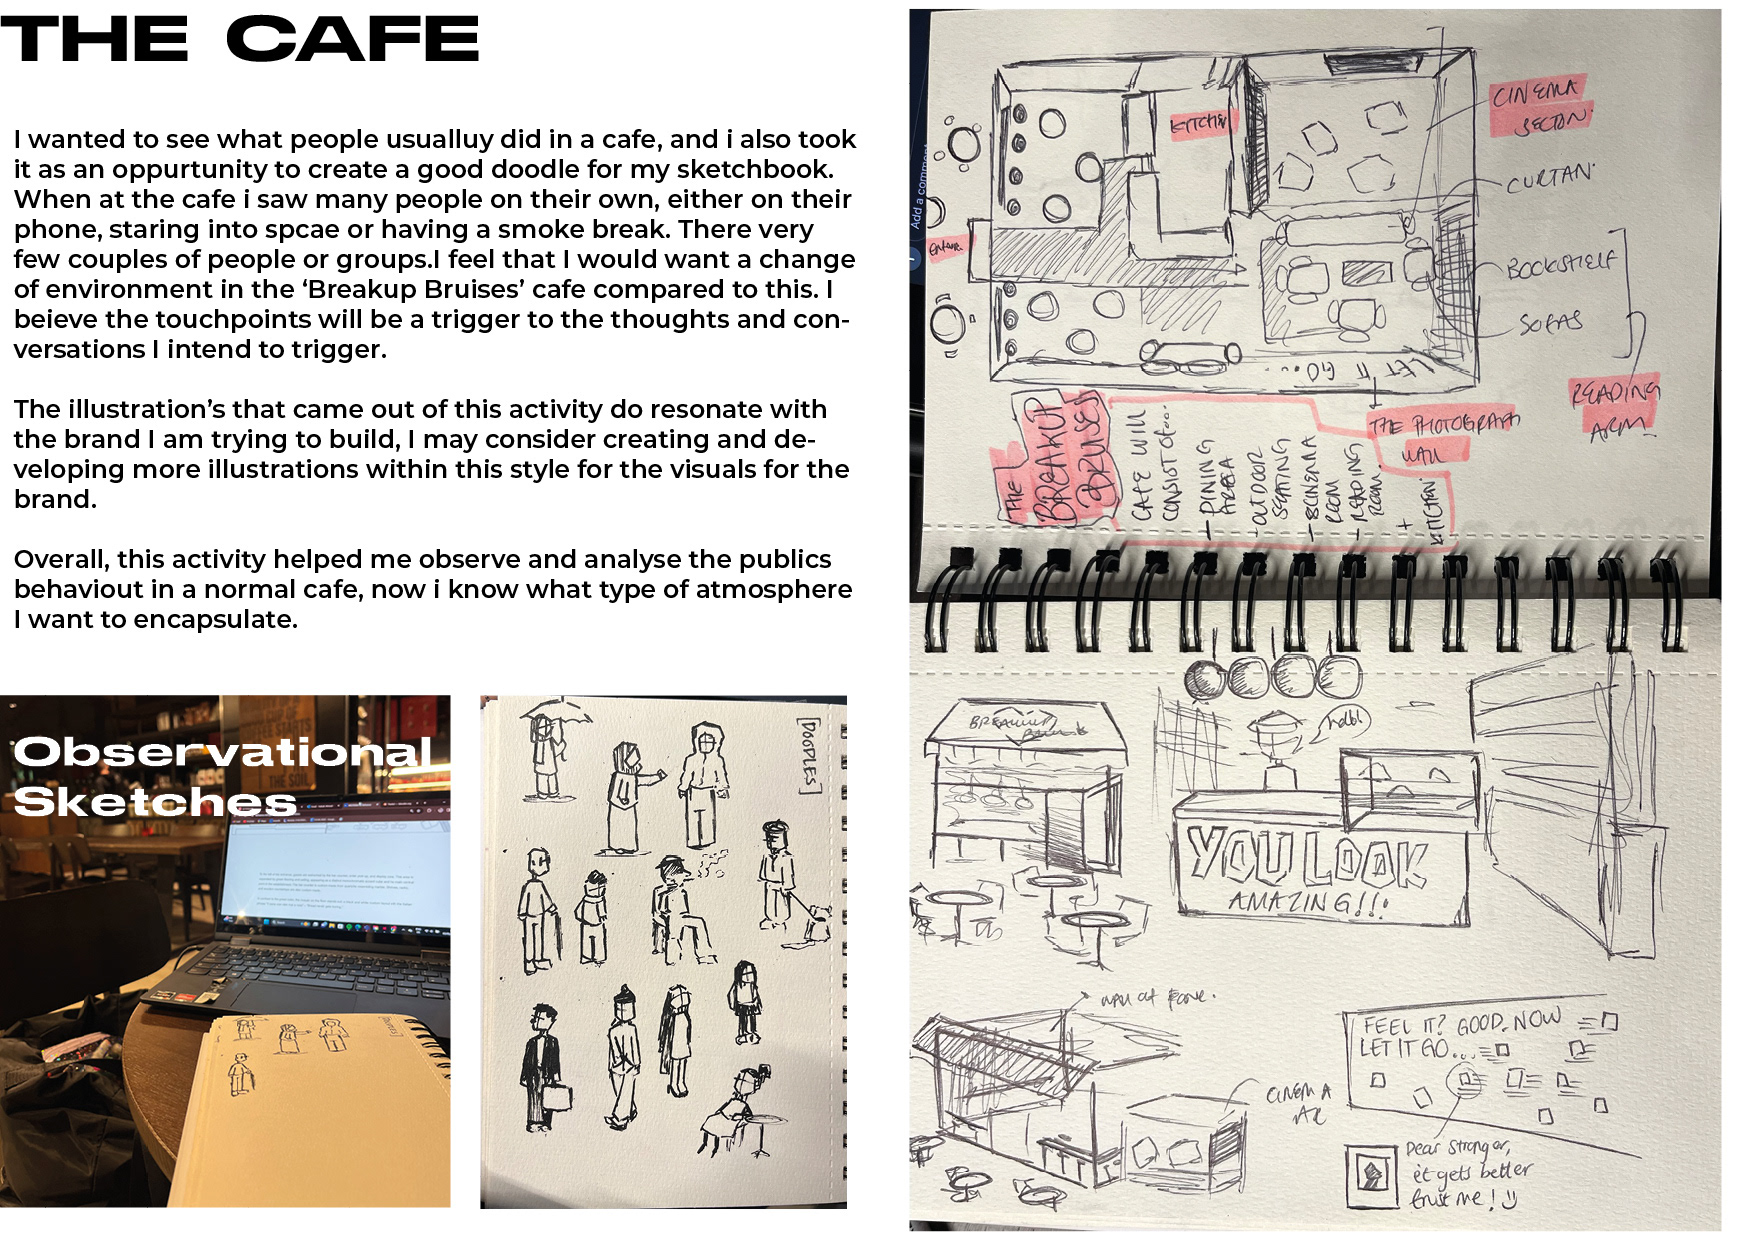 THE CAFE
I wanted to see what people usualluy did in a cafe, and i also took
it as an oppurtunity to create a good doodle for my sketchbook.
When at the cafe i saw many people on their own, either on their
phone, staring into spcae or having a smoke break. There very
few couples of people or groups.I feel that I would want a change
of environment in the ‘Breakup Bruises’ cafe compared to this. I
beieve the touchpoints will be a trigger to the thoughts and con-
versations I intend to trigger.
The illustration’s that came out of this activity do resonate with
the brand I am trying to build, I may consider creating and de-
veloping more illustrations within this style for the visuals for the
brand.
Overall, this activity helped me observe and analyse the publics
behaviout in a normal cafe, now i know what type of atmosphere
I want to encapsulate.
Observational
Sketches
THE SOIL
[DOODLES]
Add a comment
KITCHEN
CINEMA
SECTON.
CURTAN.
BOOKSHELF
SOFAS
READING
ARM.
LET IT GO....
THE PHOTOGRAPH
WALL
THE
BREAKUP
BRUISES
CAFE WILL
CONSIST OF...
- DINING
AREA
- OUTDOOR
SEATING
- CINEMA
ROOM
- READING
ROOM.
+
KITCHEN.
BREAKUP
hello!
YOU LOOK
AMAZING!!!
CINEMA
FEEL IT? GOOD. NOW
LET IT GO...
Dear Stranger,
it gets better
trust me! :)